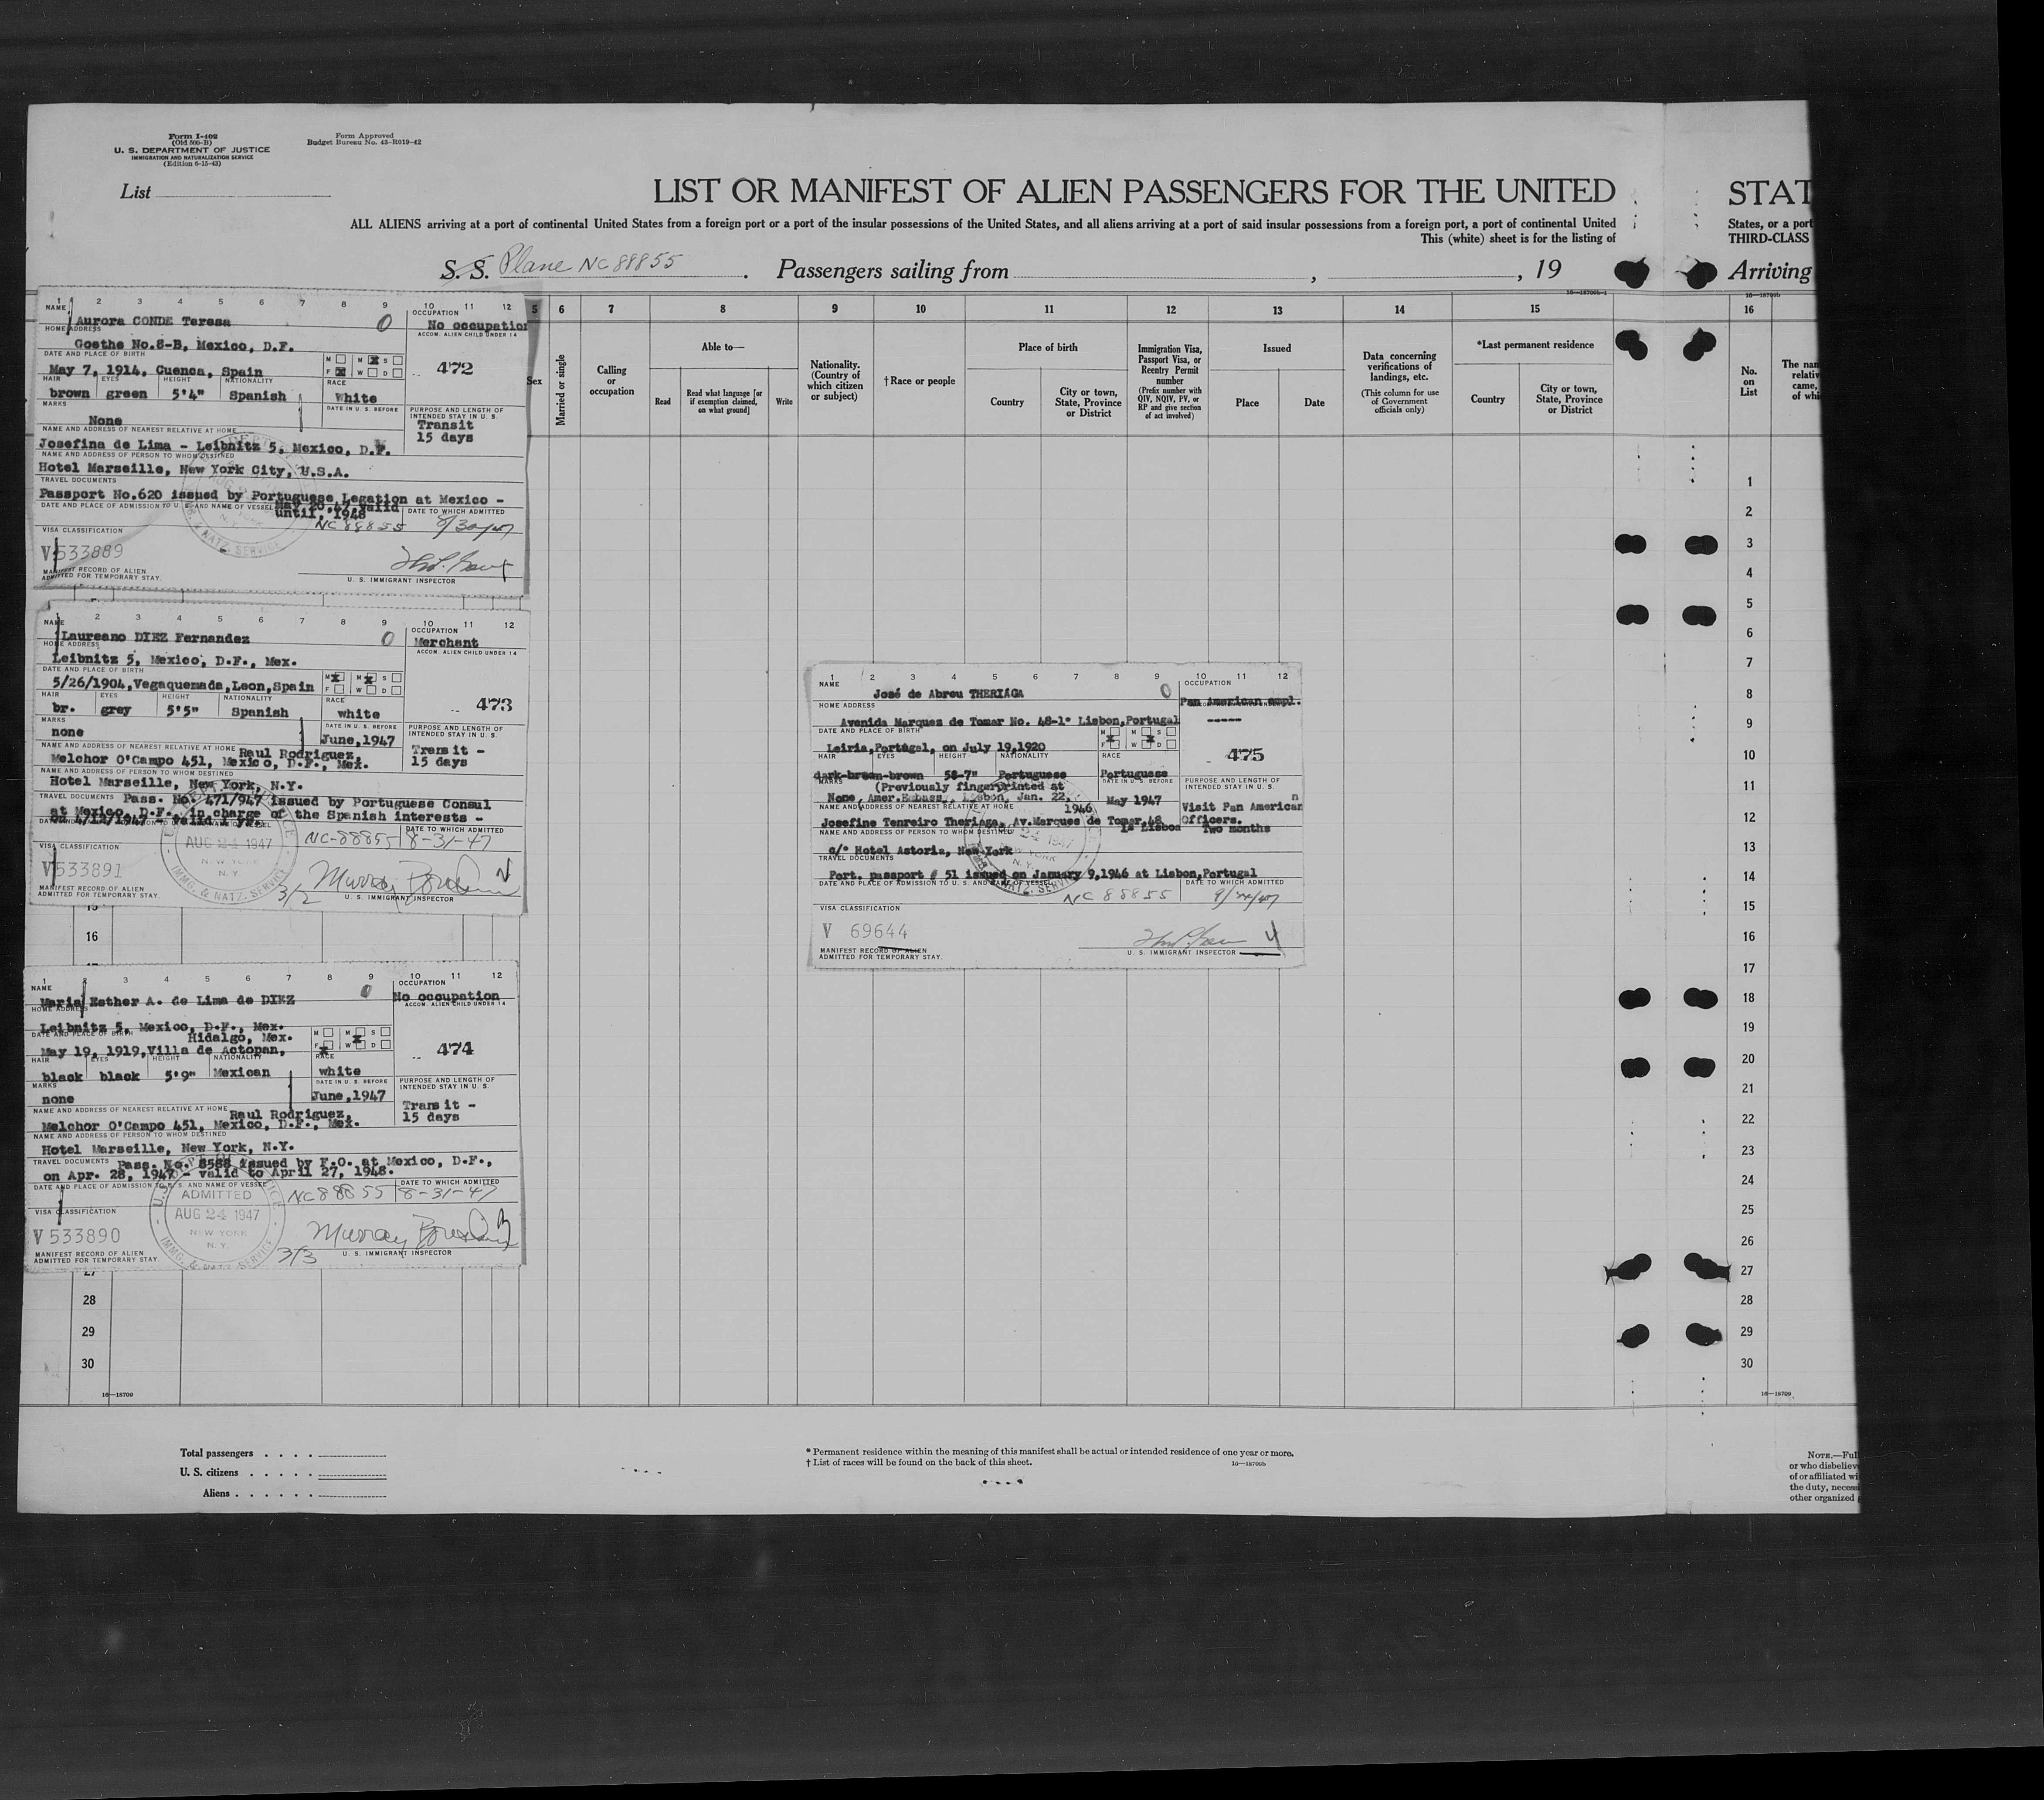 Form I-402
(Old 500-B)
U. S. DEPARTMENT OF JUSTICE
IMMIGRATION AND NATURALIZATION SERVICE
(Edition 6-15-43)
Form Approved
Budget Bureau No. 43-R019-42
List
LIST OR MANIFEST OF ALIEN PASSENGERS FOR THE UNITED
ALL ALIENS arriving at a port of continental United States from a foreign port or a port of the insular possessions of the United States, and all aliens arriving at a port of said insular possessions from a foreign port, a port of continental United
This (white) sheet is for the listing of
S. S. Plane NC 88855 . Passengers sailing from , , 19
STAT
States, or a port
THIRD-CLASS
Arriving
16—18700b-1
16—18700b
5 6 7 8 9 10 11 12 13 14 15 16
Sex
Married or single
Calling or occupation
Able to—
Read
Read what language [or if exemption claimed, on what ground]
Write
Nationality. (Country of which citizen or subject)
†Race or people
Place of birth
Country
City or town, State, Province or District
Immigration Visa, Passport Visa, or Reentry Permit number
(Prefix number with QIV, NQIV, PV, or RP and give section of act involved)
Issued
Place
Date
Data concerning verifications of landings, etc.
(This column for use of Government officials only)
*Last permanent residence
Country
City or town, State, Province or District
No. on List
The nam
relativ
came,
of whi
1 2 3 4 5 6 7 8 9 10 11 12
NAME
Aurora CONDE Teresa 0
OCCUPATION
No occupation
HOME ADDRESS
ACCOM. ALIEN CHILD UNDER 14
Goethe No.8-B, Mexico, D.F.
DATE AND PLACE OF BIRTH
M M X S
F X W D
472
May 7, 1914, Cuenca, Spain
HAIR EYES HEIGHT NATIONALITY RACE
brown green 5'4" Spanish White
MARKS
DATE IN U. S. BEFORE
PURPOSE AND LENGTH OF INTENDED STAY IN U. S.
None
Transit
15 days
NAME AND ADDRESS OF NEAREST RELATIVE AT HOME
Josefina de Lima - Leibnitz 5, Mexico, D.F.
NAME AND ADDRESS OF PERSON TO WHOM DESTINED
Hotel Marseille, New York City, U.S.A.
TRAVEL DOCUMENTS
Passport No.620 issued by Portuguese Legation at Mexico -
May 20,47,Valid
until, 1948
DATE AND PLACE OF ADMISSION TO U. S. AND NAME OF VESSEL
DATE TO WHICH ADMITTED
NC 88855
VISA CLASSIFICATION
V 533889
MANIFEST RECORD OF ALIEN
ADMITTED FOR TEMPORARY STAY.
U. S. IMMIGRANT INSPECTOR
1 2 3 4 5 6 7 8 9 10 11 12
NAME
Laureano DIEZ Fernandez 0
OCCUPATION
Merchant
HOME ADDRESS
ACCOM. ALIEN CHILD UNDER 14
Leibnitz 5, Mexico, D.F., Mex.
DATE AND PLACE OF BIRTH
M X M X S
F W D
5/26/1904,Vegaquemada,Leon,Spain
473
HAIR EYES HEIGHT NATIONALITY RACE
br. grey 5'5" Spanish white
MARKS
DATE IN U. S. BEFORE
PURPOSE AND LENGTH OF INTENDED STAY IN U. S.
none
June,1947
Transit -
15 days
NAME AND ADDRESS OF NEAREST RELATIVE AT HOME
Raul Rodriguez,
Melchor O'Campo 451, Mexico, D.F., Mex.
NAME AND ADDRESS OF PERSON TO WHOM DESTINED
Hotel Marseille, New York, N.Y.
TRAVEL DOCUMENTS
Pass. No. 471/947 issued by Portuguese Consul
at Mexico, D.F., in charge of the Spanish interests -
valid 1 yr.
AUG 24 1947
NEW YORK
N. Y.
IMMG. & NATZ. SERVICE
NC-88855
DATE TO WHICH ADMITTED
8-31-47
VISA CLASSIFICATION
V 533891
3/2
MANIFEST RECORD OF ALIEN
ADMITTED FOR TEMPORARY STAY.
U. S. IMMIGRANT INSPECTOR
15
16
1 2 3 4 5 6 7 8 9 10 11 12
NAME
Maria Esther A. de Lima de DIEZ 0
OCCUPATION
No occupation
HOME ADDRESS
ACCOM. ALIEN CHILD UNDER 14
Leibnitz 5, Mexico, D.F., Mex.
DATE AND PLACE OF BIRTH
Hidalgo, Mex.
May 19, 1919,Villa de Actopan,
M M X S
F X W D
474
HAIR EYES HEIGHT NATIONALITY RACE
black black 5'9" Mexican white
MARKS
DATE IN U. S. BEFORE
PURPOSE AND LENGTH OF INTENDED STAY IN U. S.
none
June,1947
Transit -
15 days
NAME AND ADDRESS OF NEAREST RELATIVE AT HOME
Raul Rodriguez,
Melchor O'Campo 451, Mexico, D.F., Mex.
NAME AND ADDRESS OF PERSON TO WHOM DESTINED
Hotel Marseille, New York, N.Y.
TRAVEL DOCUMENTS
Pass. No. 8588 issued by F.O. at Mexico, D.F.,
on Apr. 28, 1947 - valid to April 27, 1948.
DATE AND PLACE OF ADMISSION TO U. S. AND NAME OF VESSEL
DATE TO WHICH ADMITTED
ADMITTED
AUG 24 1947
NEW YORK
N. Y.
IMMG. & NATZ. SERVICE
NC 88855
8-31-47
VISA CLASSIFICATION
V 533890
3/3
MANIFEST RECORD OF ALIEN
ADMITTED FOR TEMPORARY STAY.
U. S. IMMIGRANT INSPECTOR
27
28
29
30
16—18700
1 2 3 4 5 6 7 8 9 10 11 12
NAME
José de Abreu THERIAGA 0
OCCUPATION
Pan American empl.
HOME ADDRESS
Avenida Marques de Tomar No. 48-1º Lisbon,Portugal
-----
DATE AND PLACE OF BIRTH
M X M S
F W X D
Leiria,Portugal, on July 19,1920
475
HAIR EYES HEIGHT NATIONALITY RACE
dark-brown-brown 58-7" Portuguese Portuguese
MARKS
DATE IN U. S. BEFORE
PURPOSE AND LENGTH OF INTENDED STAY IN U. S.
(Previously fingerprinted at
None, Amer.Embassy, Lisbon, Jan. 22,
1946
May 1947
Visit Pan American
Officers.
Two months
NAME AND ADDRESS OF NEAREST RELATIVE AT HOME
Josefine Tenreiro Theriaga, Av.Marques de Tomar,48
1º Lisboa
NAME AND ADDRESS OF PERSON TO WHOM DESTINED
c/º Hotel Astoria, New York
TRAVEL DOCUMENTS
Port. passport # 51 issued on January 9,1946 at Lisbon,Portugal
DATE AND PLACE OF ADMISSION TO U. S. AND NAME OF VESSEL
DATE TO WHICH ADMITTED
NC 88855
VISA CLASSIFICATION
V 69644
4
MANIFEST RECORD OF ALIEN
ADMITTED FOR TEMPORARY STAY.
U. S. IMMIGRANT INSPECTOR
1
2
3
4
5
6
7
8
9
10
11
12
13
14
15
16
17
18
19
20
21
22
23
24
25
26
27
28
29
30
16—18700
Total passengers . . . .
U. S. citizens . . . . .
Aliens . . . . . .
* Permanent residence within the meaning of this manifest shall be actual or intended residence of one year or more.
† List of races will be found on the back of this sheet.
16—18700b
NOTE.—Full
or who disbeliev
of or affiliated wi
the duty, necess
other organized